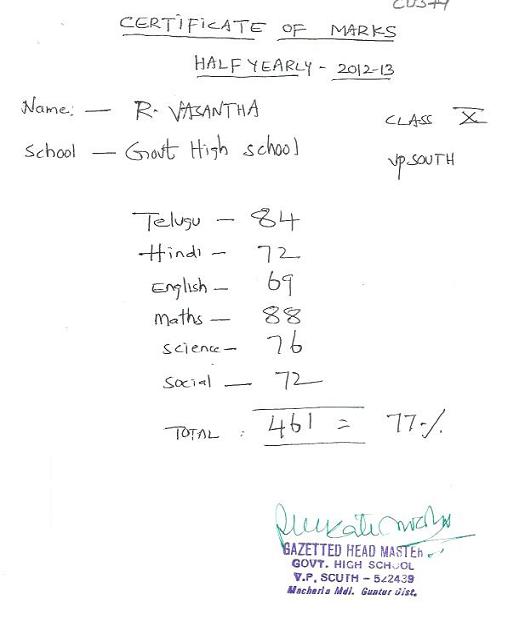 CU344
CERTIFICATE OF MARKS
HALF YEARLY - 2012-13
Name: — R. VASANTHA
CLASS X
School — Govt High school
VP SOUTH
Telugu — 84
Hindi — 72
English — 69
Maths — 88
Science — 76
Social — 72
TOTAL : 461 = 77%
GAZETTED HEAD MASTER
GOVT. HIGH SCHOOL
V.P. SOUTH - 522439
Macherla Mdl. Guntur Dist.